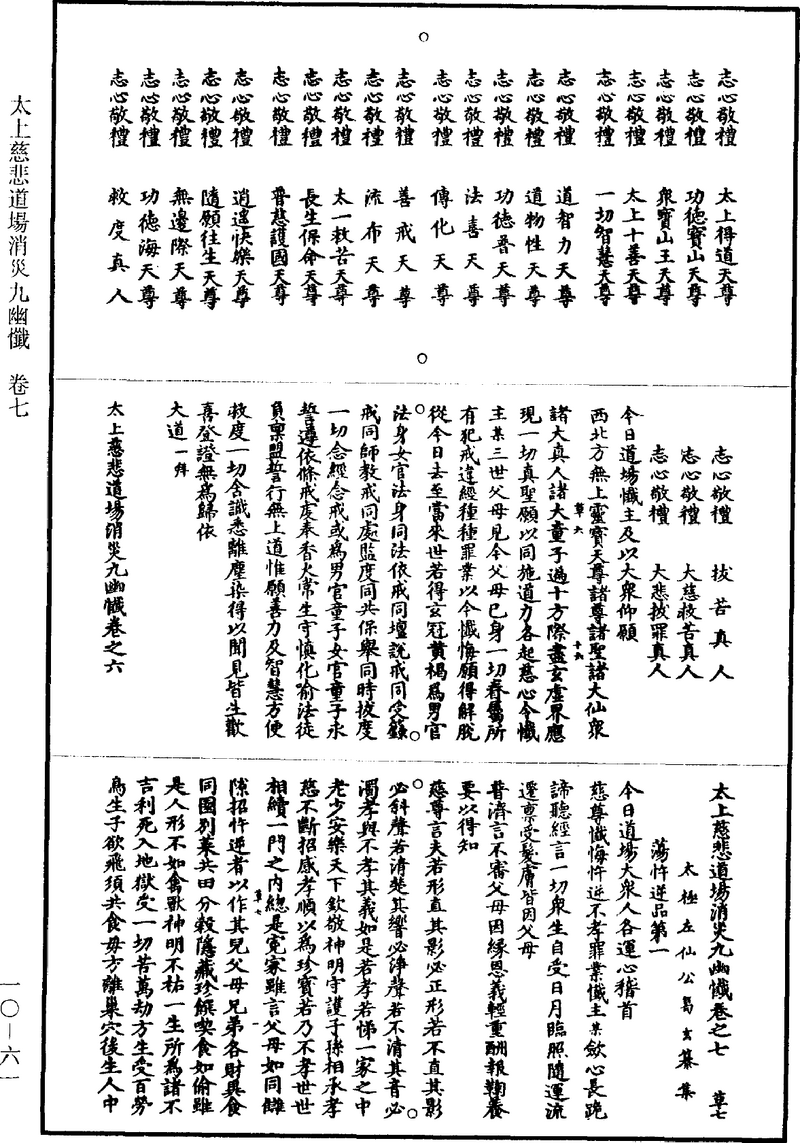 志心敬禮　太上得道天尊
志心敬禮　功德寶山天尊
志心敬禮　衆寶山王天尊
志心敬禮　太上十善天尊
志心敬禮　一切智慧天尊
志心敬禮　道智力天尊
志心敬禮　道物性天尊
志心敬禮　功德普天尊
志心敬禮　法喜天尊
志心敬禮　傳化天尊
志心敬禮　善戒天尊
志心敬禮　流布天尊
志心敬禮　太一救苦天尊
志心敬禮　長生保命天尊
志心敬禮　普慈護國天尊
志心敬禮　逍遥快樂天尊
志心敬禮　隨願往生天尊
志心敬禮　無邊際天尊
志心敬禮　功德海天尊
志心敬禮　救度真人
志心敬禮　拔苦真人
志心敬禮　大慈救苦真人
志心敬禮　大悲拔罪真人
今日道場懺主及以大衆仰願
西北方無上靈寶天尊諸尊諸聖諸大仙衆
草六
諸大真人諸大童子遍十方際盡玄虛界應
現一切真聖願以同施道力各起慈心今懺
主某三世父母見今父母已身一切眷屬所
有犯戒違經種種罪業以今懺悔願得解脫
從今日去至當來世若得玄冠黄褐爲男官
法身女官法身同法依戒同壇說戒同受籙
戒同師教戒同處監度同共保舉同時拔度
一切念經念戒或爲男官童子女官童子永
誓遵依條戒度奉香火常生守慎化喻法徒
負稟盟誓行無上道惟願善力及智慧方便
救度一切含識悉離塵染得以聞見皆生歡
喜登證無爲歸依
大道一拜
太上慈悲道場消災九幽懺卷之六
太上慈悲道場消災九幽懺卷之七　草七
太極左仙公葛玄纂集
蕩忤逆品第一
今日道場大衆人各運心稽首
慈尊懺悔忤逆不孝罪業懺主某歛心長跪
諦聽經言一切衆生自受日月臨照隨運流
遷禀受髮膚皆因父母
普濟言不審父母因緣恩義輕重酬報鞠養
要以得知
慈尊言夫若形直其影必正形若不直其影
必斜聲若清楚其響必淨聲若不清其音必
濁孝與不孝其義如是若孝若悌一家之中
老少安樂天下欽敬神明守護子孫相承孝
慈不斷招感孝順以爲珍寶若乃不孝世世
相續一門之内總是冤家雖言父母如同讎
草七
隙招忤逆者以作其兒父母兄弟各財異食
同園别菜共田分榖隱藏珍饌喫食如偷雖
是人形不如禽獸神明不祐一生所爲諸不
吉利死入地獄受一切苦萬劫方生受百勞
鳥生子欲飛須共食母方離巢穴後生人中
太上慈悲道場消災九幽懺　卷七
一〇—六一